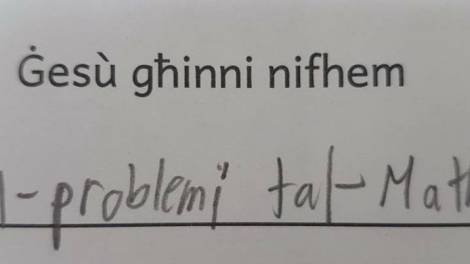 Ġesù għinni nifhem
l-problemi tal-Mat